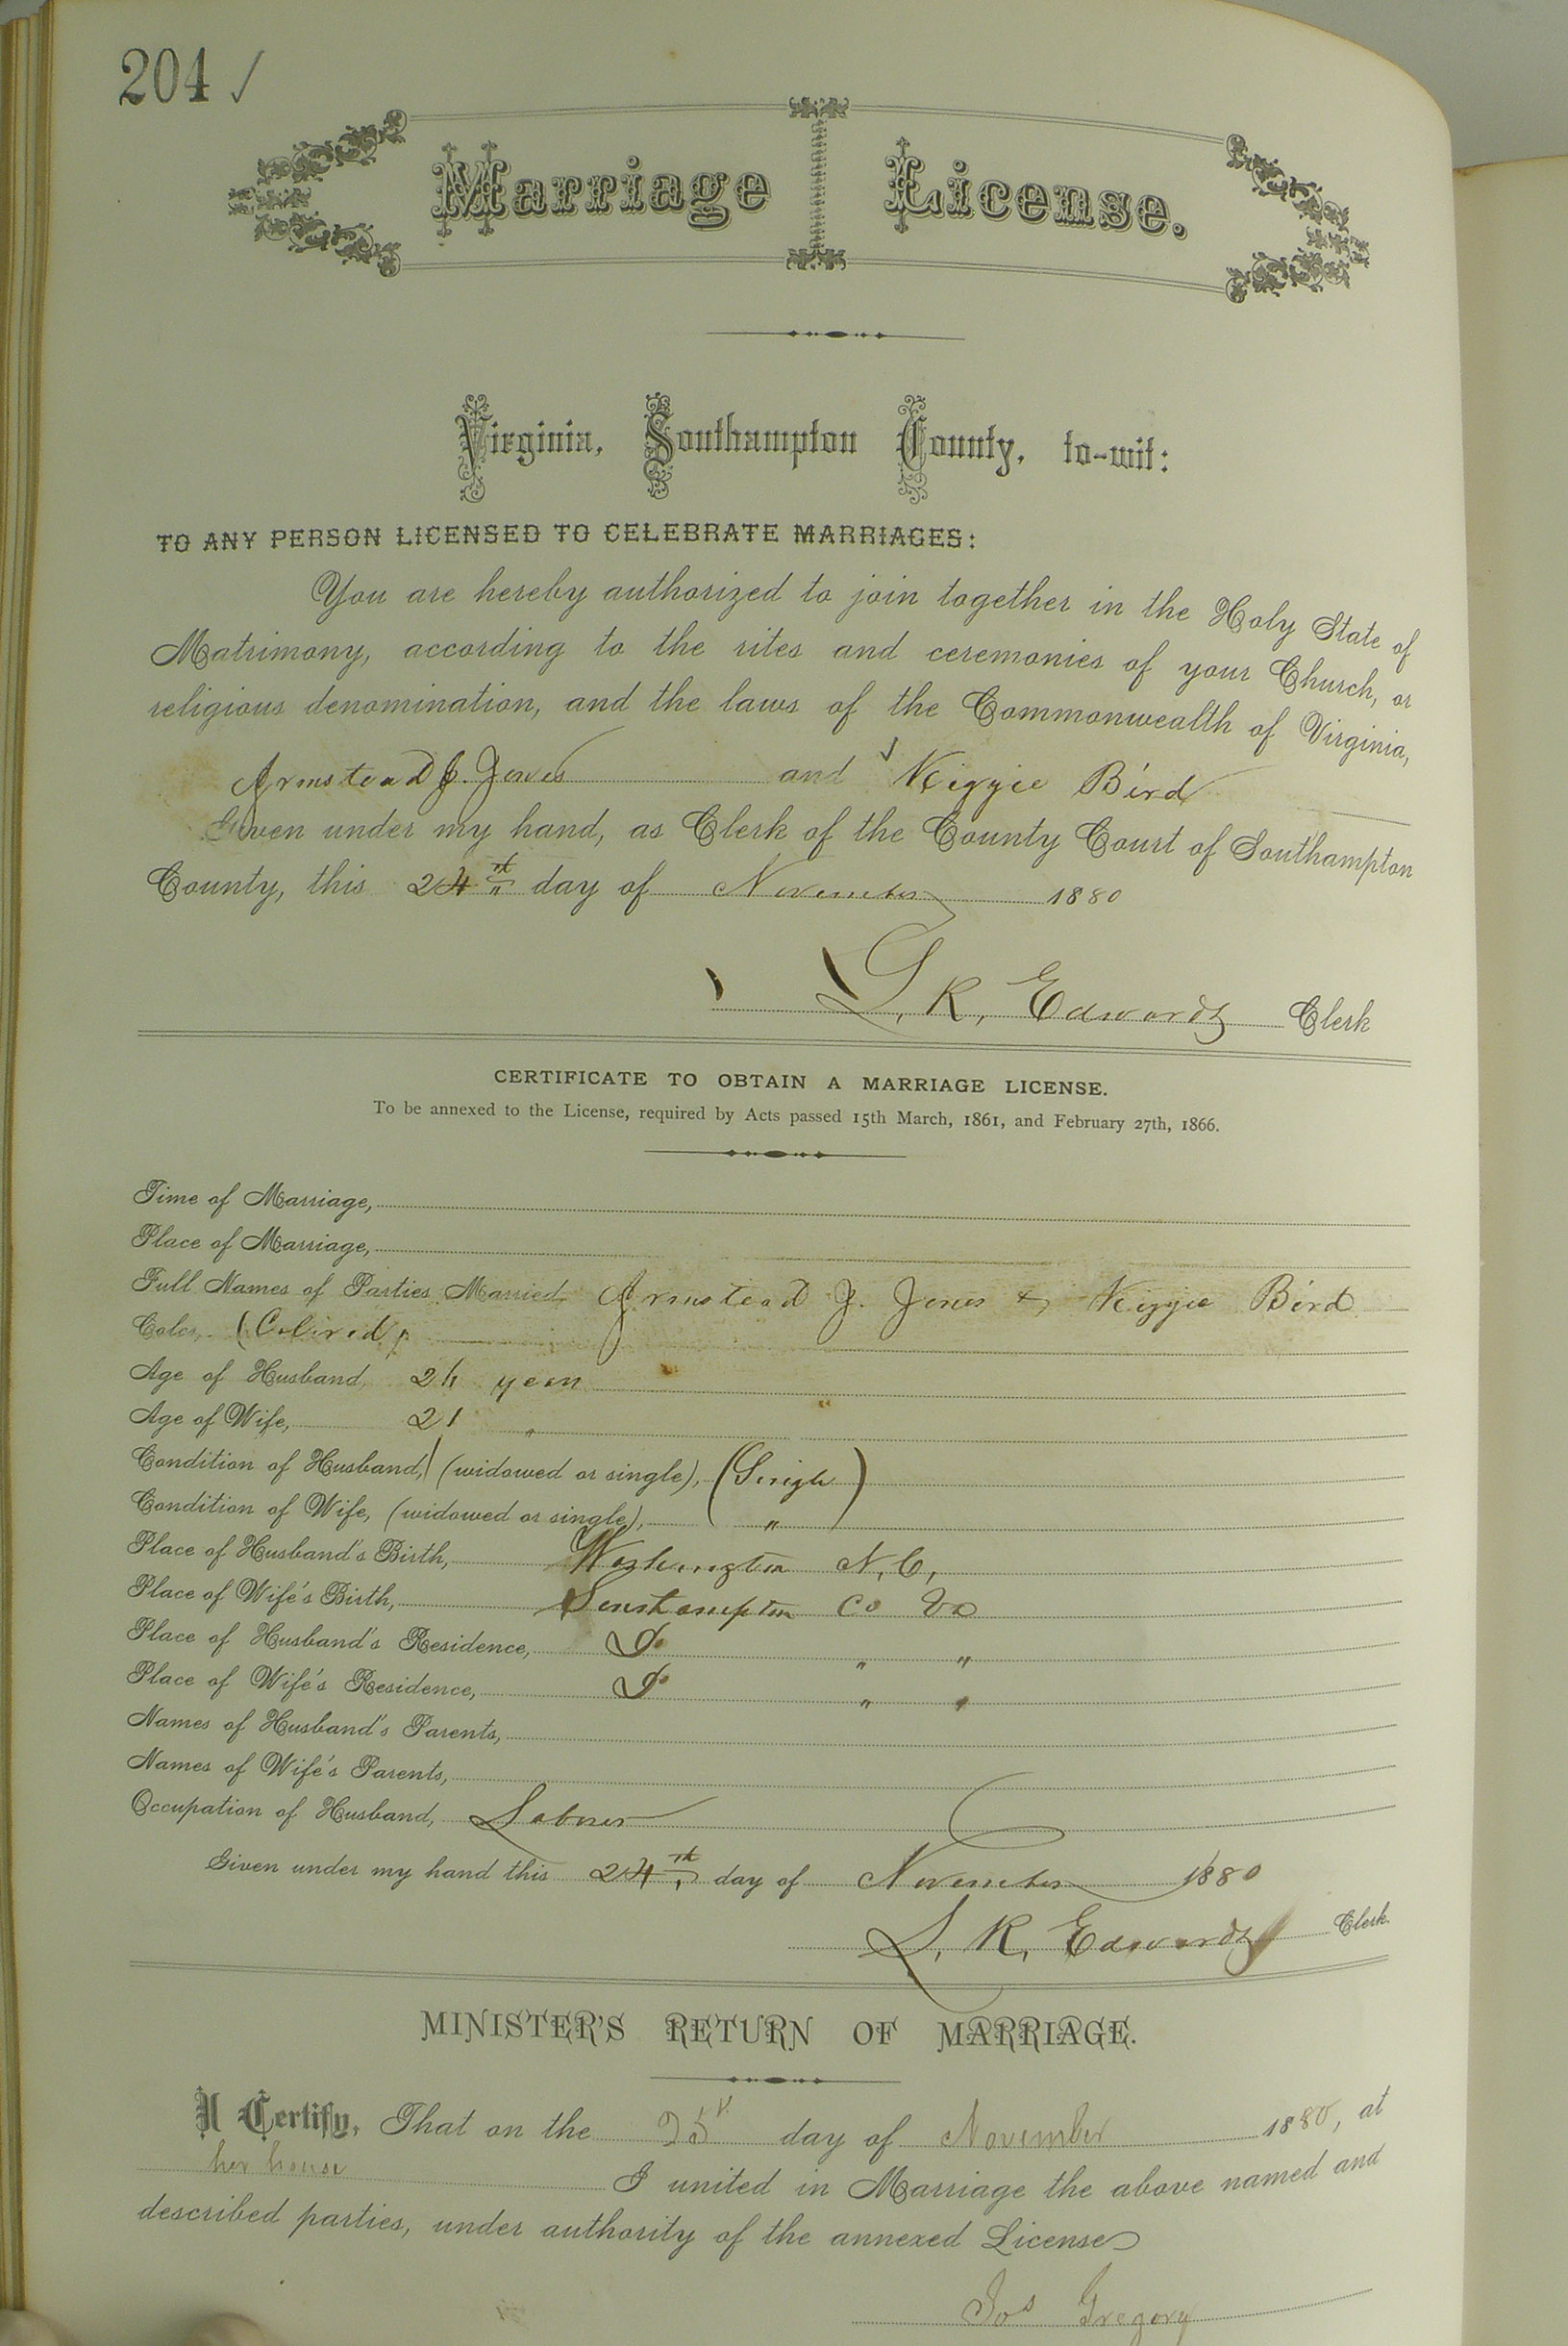 204 ✓
Marriage License.
Virginia, Southampton County, to-wit:
TO ANY PERSON LICENSED TO CELEBRATE MARRIAGES:
You are hereby authorized to join together in the Holy State of
Matrimony, according to the rites and ceremonies of your Church, or
religious denomination, and the laws of the Commonwealth of Virginia,
Armstead J. Jones and ✓ Kizzie Bird
Given under my hand, as Clerk of the County Court of Southampton
County, this 24th day of November 1880
L. R. Edwards Clerk
CERTIFICATE TO OBTAIN A MARRIAGE LICENSE.
To be annexed to the License, required by Acts passed 15th March, 1861, and February 27th, 1866.
Time of Marriage,
Place of Marriage,
Full Names of Parties Married, Armstead J. Jones & Kizzie Bird
Color, (Colored)
Age of Husband, years
Age of Wife, 21 "
Condition of Husband, (widowed or single), (Single)
Condition of Wife, (widowed or single), "
Place of Husband's Birth, Washington N. C.,
Place of Wife's Birth, Southampton Co Va
Place of Husband's Residence, Do " "
Place of Wife's Residence, Do " "
Names of Husband's Parents,
Names of Wife's Parents,
Occupation of Husband, Laborer
Given under my hand this 24th day of November 1880
L. R. Edwards Clerk.
MINISTER'S RETURN OF MARRIAGE.
I Certify, That on the 25 day of November 1880, at
her house I united in Marriage the above named and
described parties, under authority of the annexed License
Jos Gregory